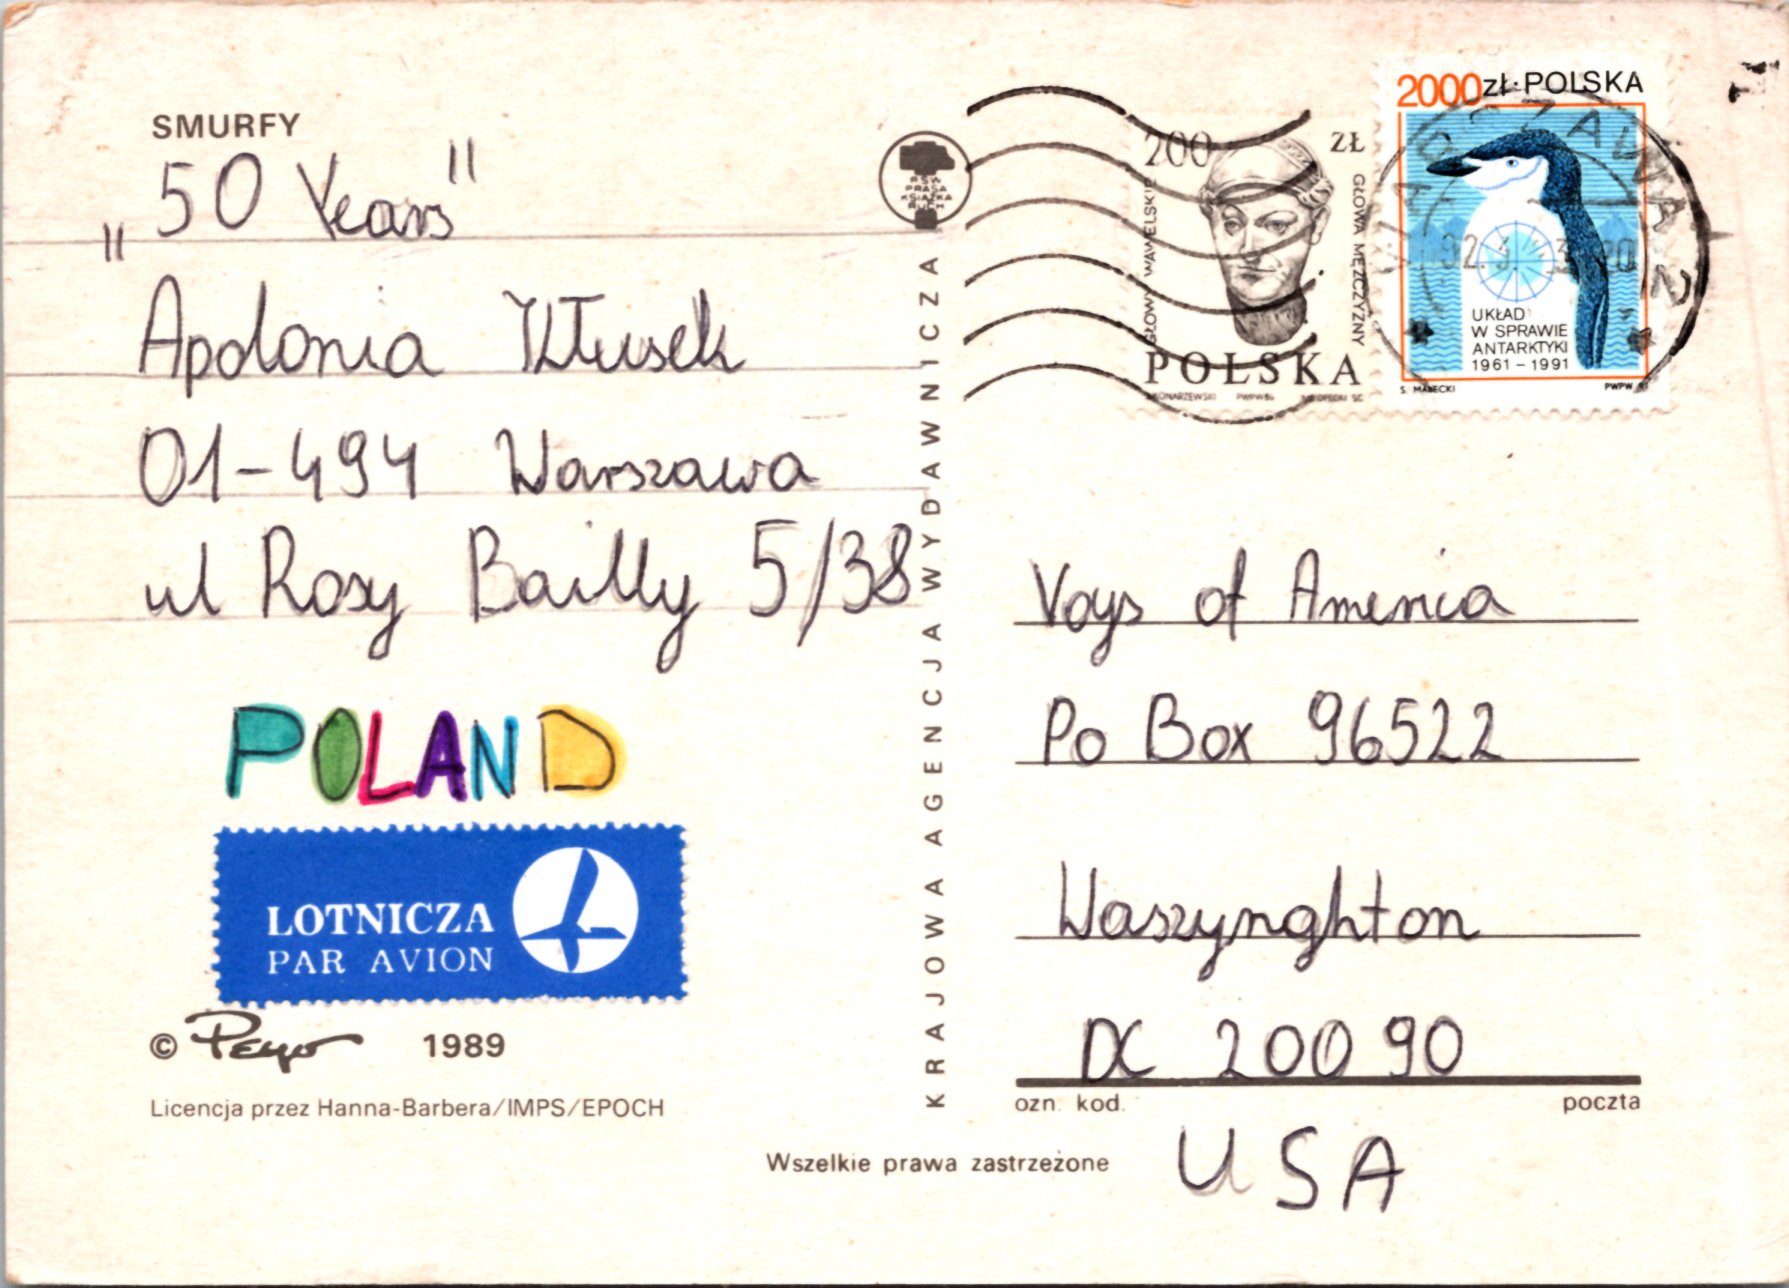 SMURFY
„50 Years"
Apolonia Kłusek
01-494 Warszawa
ul Rosy Bailly 5/38
POLAND
LOTNICZA
PAR AVION
© Peyo 1989
Licencja przez Hanna-Barbera/IMPS/EPOCH
RSW
PRASA
KSIĄŻKA
RUCH
KRAJOWA AGENCJA WYDAWNICZA
Wszelkie prawa zastrzeżone
200 ZŁ
GŁOWY WAWELSKIE
GŁOWA MĘŻCZYZNY
POLSKA
2000 zł·POLSKA
UKŁAD
W SPRAWIE
ANTARKTYKI
1961–1991
S. MAŁECKI PWPW
WARSZAWA
Voys of America
Po Box 96522
Waszynghton
DC 20090
ozn. kod. poczta
USA